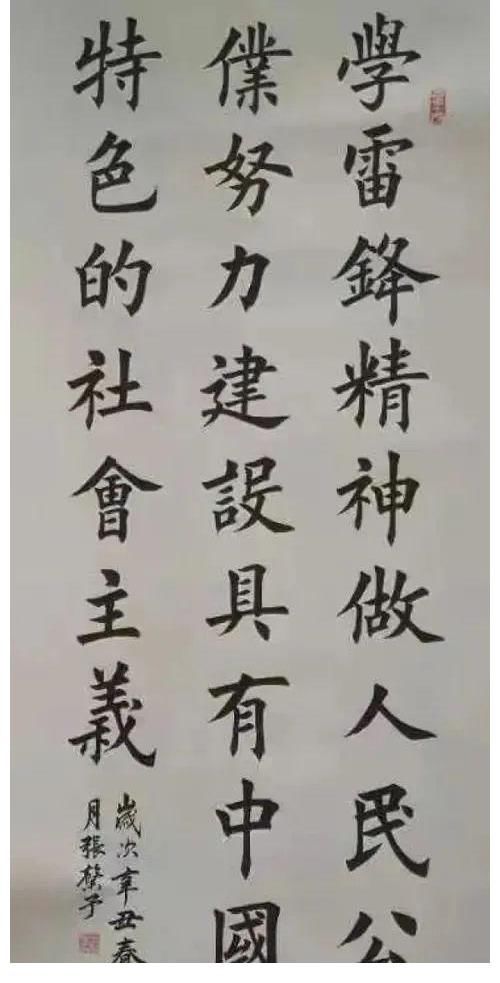 學雷鋒精神做人民公
僕努力建設具有中國
特色的社會主義
歲次辛丑春
月張予